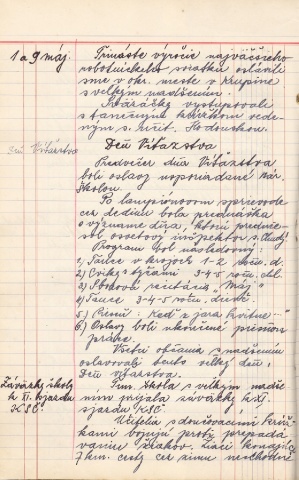 1 a 9 máj.
Trináste výročie najväčšieho
robotníckeho sviatku oslávili
sme v okr. meste v Krupine
s veľkým nadšením.
vystupovali
s tanečným krúžkom vede-
ným s. učit.
Deň Víťazstva
Deň Víťazstva
Predvečer dňa Víťazstva
boli oslavy usporiadané nár.
školou.
Po lampionovom sprievode
cez dedinu bola prednáška
o význame dňa, ktorú predniе-
sol osvetový inšpektor s.
Program bol nasledovný:
1) Tance v krojoch 1-2 roču. d.
2) Cviky s 3-4-5 roču. d.
3) Sborová recitácia „Máj"
4) Tance 3-4-5 roču.
5) Pieseň: Keď z jara kvitne
6) Oslavy boli ukončené piesňou
práce.
Všetci občania s nadšením
oslavovali tento veľký deň,
Deň víťazstva.
Záväzky školy
k XI. sjazdu
KSČ.
škola s veľkým nadše-
ním prijala záväzky k XI.
sjazdu KSČ.
Učitelia s
bojujú proti
žiakov, žiaci konajú
7 km. cesty cez zimu